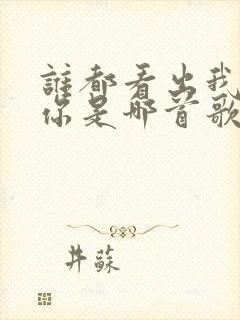 誰都看出我
你是哪首歌
井蘇